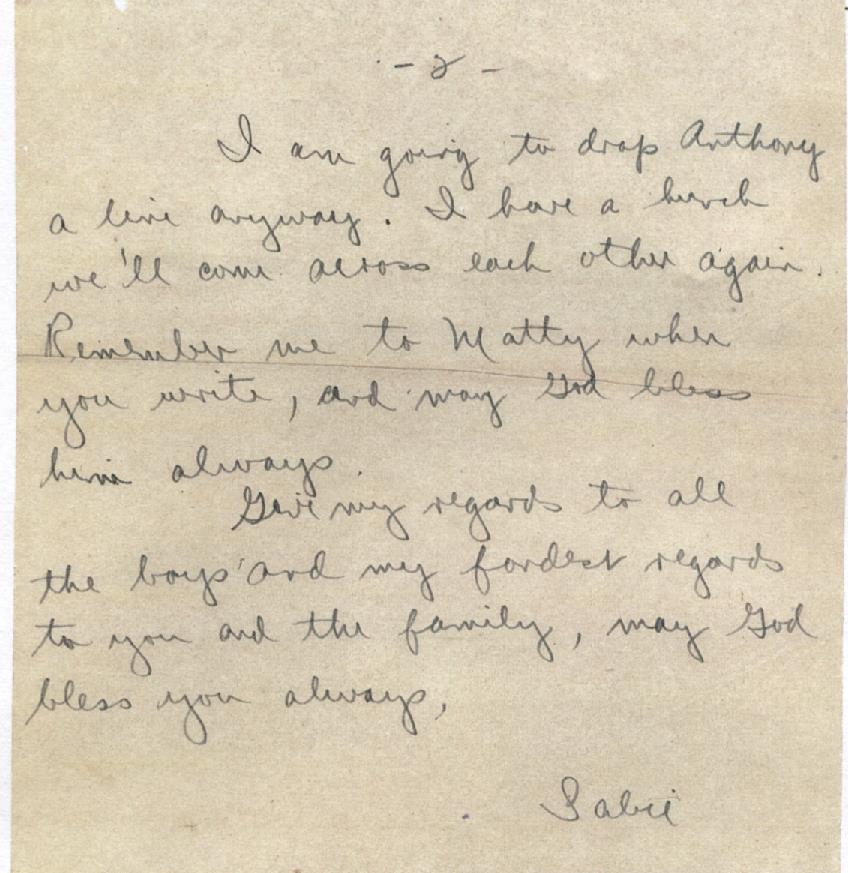 - 2 -
I am going to drop Anthony
a line anyway. I have a hunch
we'll come across each other again.
Remember me to Matty when
you write, and may God bless
him always.
Give my regards to all
the boys and my fondest regards
to you and the family, may God
bless you always,
Sabie